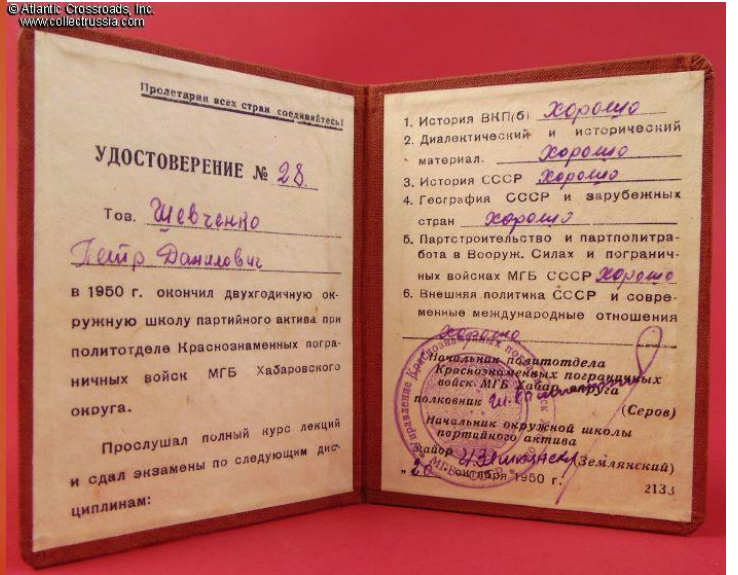 © Atlantic Crossroads, Inc.
www.collectrussia.com
Пролетарии всех стран соединяйтесь!
УДОСТОВЕРЕНИЕ № 28.
Тов. Шевченко
Петр Данилович
в 1950 г. окончил двухгодичную ок-
ружную школу партийного актива при
политотделе Краснознаменных погра-
ничных войск МГБ Хабаровского
округа.
Прослушал полный курс лекций
и сдал экзамены по следующим дис-
циплинам:
1. История ВКП(б) хорошо
2. Диалектический и исторический
материал. хорошо
3. История СССР хорошо
4. География СССР и зарубежных
стран хорошо
5. Партстроительство и партполитра-
бота в Вооруж. Силах и погранич-
ных войсках МГБ СССР хорошо
6. Внешняя политика СССР и совре-
менные международные отношения
хорошо
Начальник политотдела
Краснознаменных пограничных
войск МГБ Хабар. округа
полковник
(Серов)
Начальник окружной школы
партийного актива
майор (Землянский)
„20 октября 1950 г.
2133